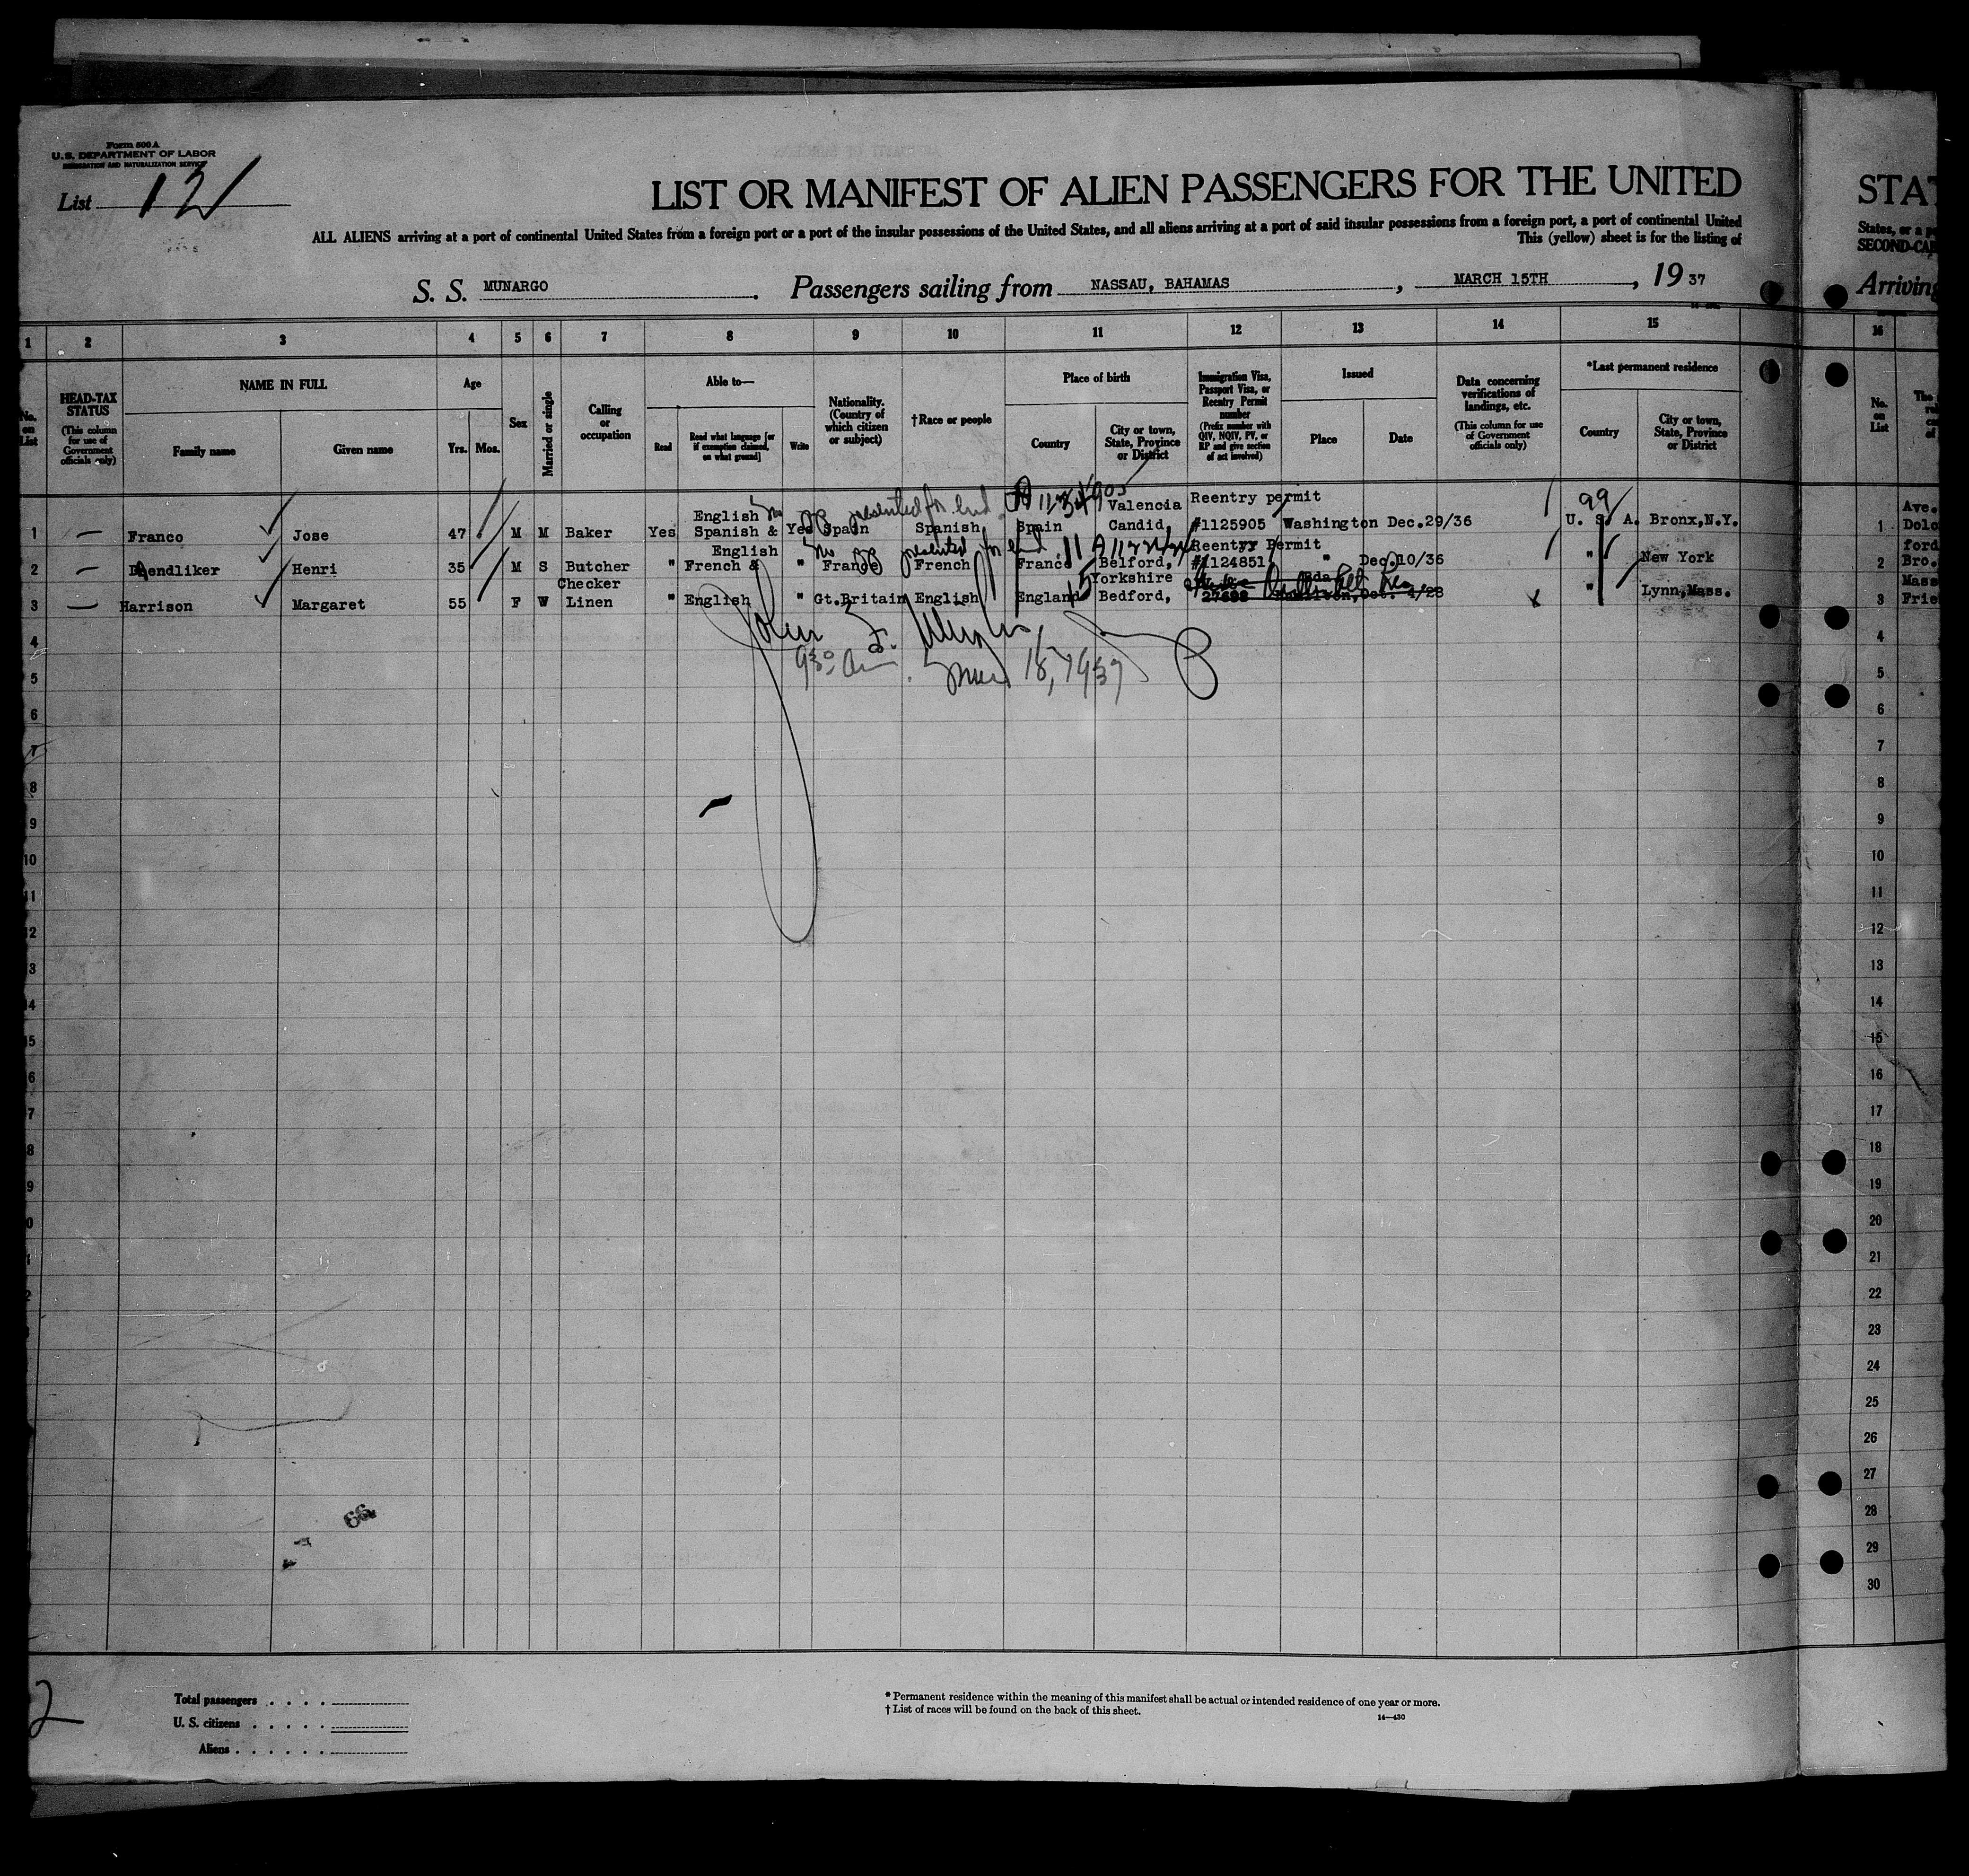 Form 500 A
U.S. DEPARTMENT OF LABOR
IMMIGRATION AND NATURALIZATION SERVICE
List 121
LIST OR MANIFEST OF ALIEN PASSENGERS FOR THE UNITED
STAT
ALL ALIENS arriving at a port of continental United States from a foreign port or a port of the insular possessions of the United States, and all aliens arriving at a port of said insular possessions from a foreign port, a port of continental United
States, or a
This (yellow) sheet is for the listing of
SECOND-CA
S. S. MUNARGO Passengers sailing from NASSAU, BAHAMAS, MARCH 15TH, 1937
Arriving
1 2 3 4 5 6 7 8 9 10 11 12 13 14 15 16
No. on List
HEAD-TAX STATUS
(This column for use of Government officials only)
NAME IN FULL
Family name
Given name
Age
Yrs. Mos.
Sex
Married or single
Calling or occupation
Able to—
Read
Read what language [or if exemption claimed, on what ground]
Write
Nationality. (Country of which citizen or subject)
†Race or people
Place of birth
Country
City or town, State, Province or District
Immigration Visa, Passport Visa, or Reentry Permit number
(Prefix number with QIV, NQIV, PV, or RP and give section of act involved)
Issued
Place
Date
Data concerning verifications of landings, etc.
(This column for use of Government officials only)
*Last permanent residence
Country
City or town, State, Province or District
No. on List
The
presented for
English Valencia Reentry permit 99
1 Franco Jose 47 M M Baker Yes Spanish & Yes Spain Spanish Spain Candid, #1125905 Washington Dec.29/36 U. S. A. Bronx,N.Y. 1
Ave.
Dolo
presented for
English Reentry Permit
ford
2 Daendliker Henri 35 M S Butcher " French & " France French France Belford, #1124851 " Dec.10/36 " New York 2
Bro.
Checker Yorkshire
Mass
3 Harrison Margaret 55 F W Linen " English " Gt.Britain English England Bedford, 27698 Oct. 4/28 " Lynn,Mass. 3
Frie
John F.
9:30 am. Mar 18, 1937
4 4
5 5
6 6
7 7
8 8
9 9
10 10
11 11
12 12
13 13
14 14
15 15
16 16
17 17
18 18
19 19
20 20
21
22
23
24
25
26
27
28
29
30
66
2
Total passengers
U. S. citizens
Aliens
* Permanent residence within the meaning of this manifest shall be actual or intended residence of one year or more.
† List of races will be found on the back of this sheet.
14—430